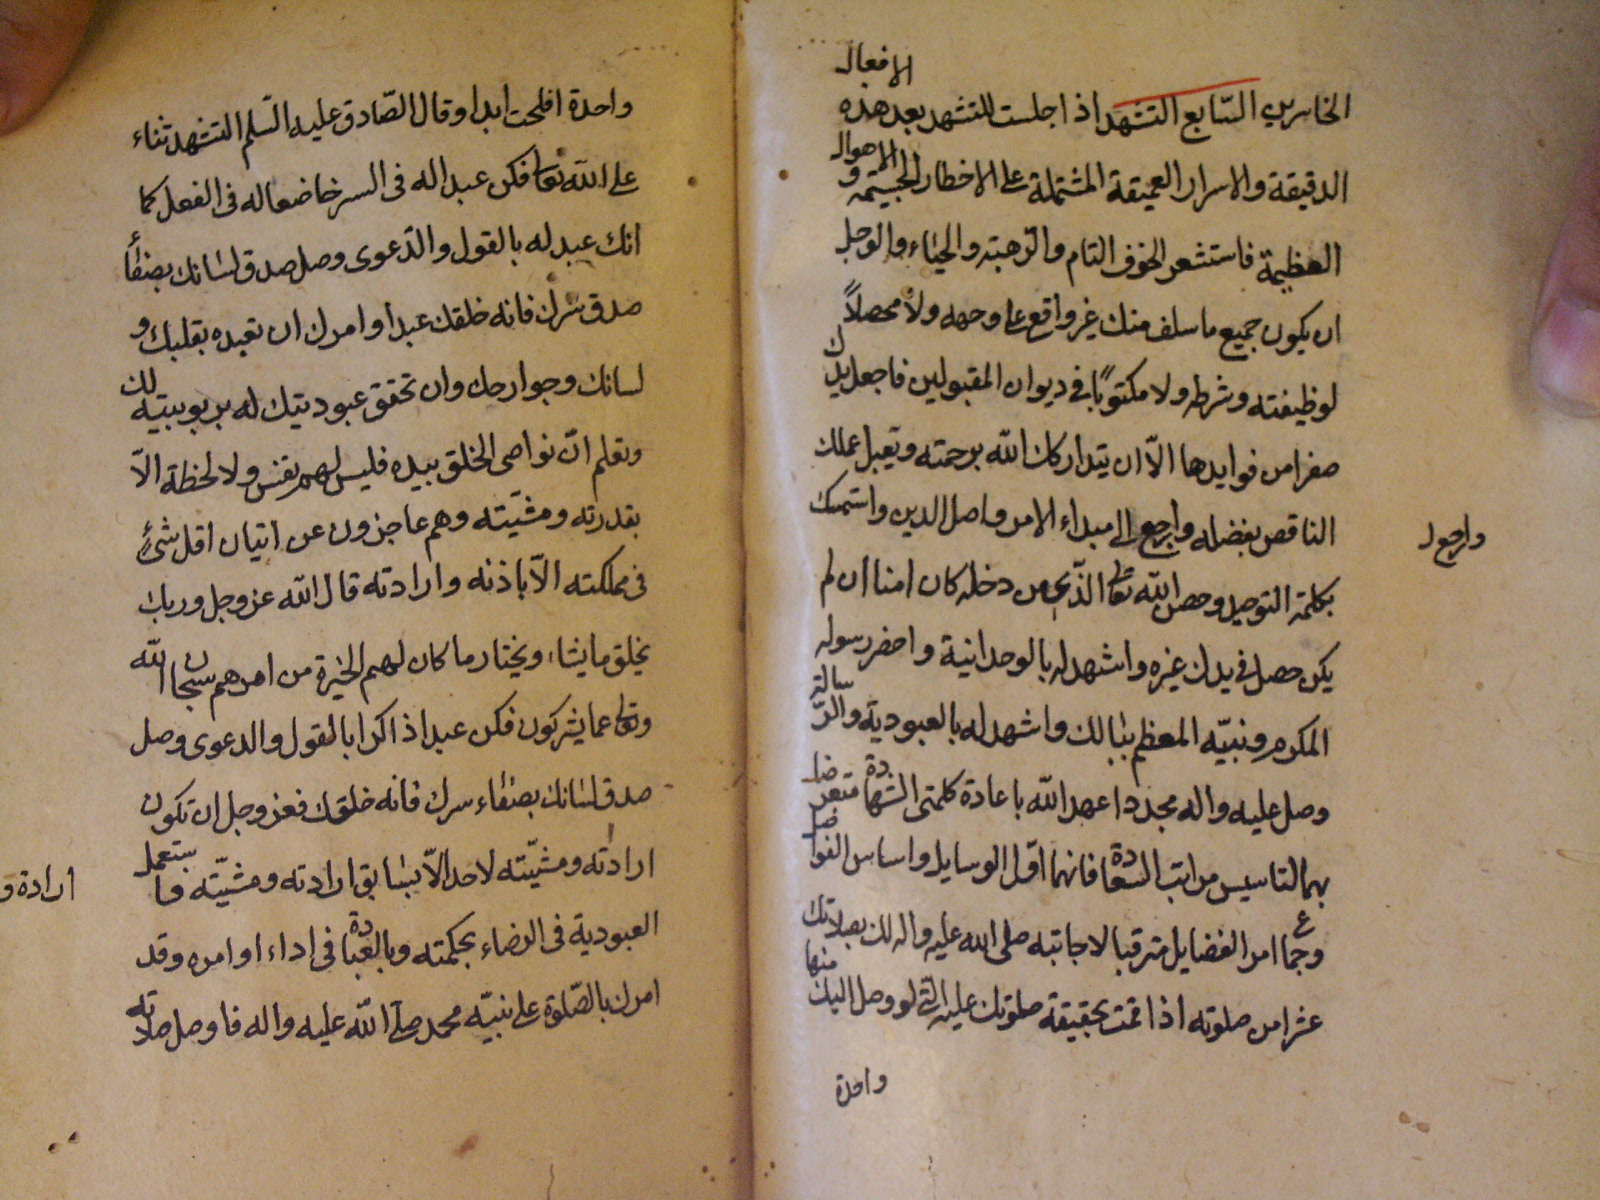 الخاسرين السّابع التشهد اذا جلست للتشهد بعد هذه الافعال
الدقيقة والاسرار العميقة المشتملة على الاخطار الجسيمة و الاهوال
العظيمة فاستشعر الخوف التام والرّهبة والحياء والوجل
ان يكون جميع ما سلف منك غير واقع على وجهه ولا محصلاً
لوظيفته وشرطه ولا مكتوبًا في ديوان المقبولين فاجعل يدك
صفرا من فوايدها الّا ان يتداركك الله برحمته ويقبل عملك
الناقص بفضله وارجع الى مبداء الامر واصل الدين واستمسك
وارجع
بكلمة التوحيد وحصن الله تعا الّذى من دخله كان امنا ان لم
يكن حصل في يدك غيره واشهد له بالوحدانية واحضر رسوله
المكرم ونبيّه المعظم ببالك واشهد له بالعبودية والرّسالة
وصل عليه واله مجددا عهد الله باعادة كلمتى الشهادة متعرضا
بهما لتاسيس مراتب السعادة فانهما اوّل الوسايل واساس الفواضل
وجماع امر الفضايل مترقبا لاجابته صلى الله عليه واله لك بصلاتك
عشرا من صلوته اذا قمت بحقيقة صلوتك عليه الّتى لو وصل اليك منها
واحدة
واحدة افلحت ابدا وقال الصّادق عليه السّلم التشهد ثناء
على الله تعا فكن عبدا له فى السر خاضعا له فى الفعل كما
انك عبد له بالقول والدّعوى وصل صدق لسانك بصفاء
صدق سرّك فانه خلقك عبدا وامرك ان تعبده بقلبك و
لسانك وجوارحك وان تحقق عبوديتك له بربوبيته لك
وتعلم انّ نواصى الخلق بيده فليس لهم نفس ولا لحظة الّا
بقدرته ومشيّته وهم عاجزون عن اتيان اقل شئ
فى مملكته الّا باذنه وارادته قال الله عز وجل وربك
يخلق ما يشاء ويختار ما كان لهم الخيرة من امرهم سبحان الله
وتعا عما يشركون فكن عبدا ذاكرا بالقول والدعوى وصل
صدق لسانك بصفاء سرك فانه خلقك فعز وجل ان تكون
ارادته ومشيّته لاحد الّا بسابق ارادته ومشيّته فاستعمل
ارادة و
العبودية فى الرضاء بحكمته وبالعبادة فى اداء اوامره وقد
امرك بالصّلوة على نبيّه محمد صلّى الله عليه واله فاوصل صلاته